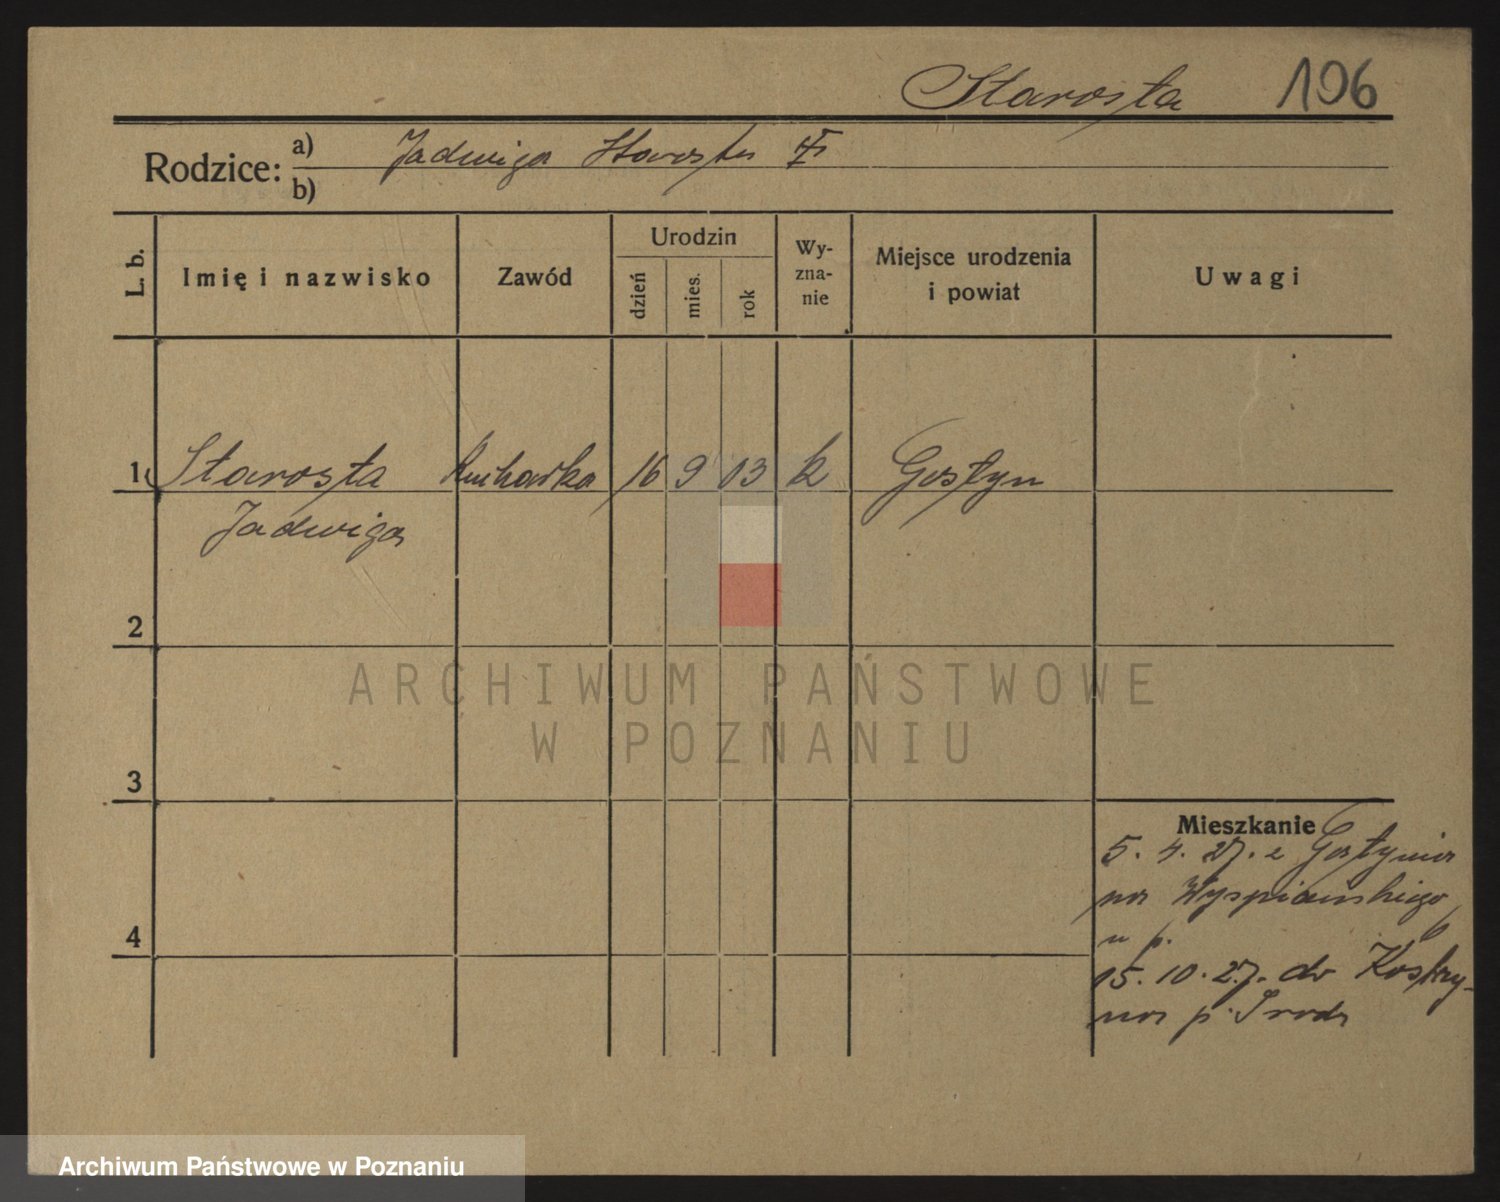 Starosta 196
Rodzice: a) Jadwiga Starosta
b)
L. b. Imię i nazwisko Zawód Urodzin dzień mies. rok Wy-zna-nie Miejsce urodzenia i powiat Uwagi
1 Starosta Kucharka 16 9 13 k Gostyn
Jadwiga
2
ARCHIWUM PAŃSTWOWE
W POZNANIU
3
Mieszkanie
5. 4. 27. z Gostynia
na Wyspiańskiego
u p. 6
4
15. 10. 27. do Kostrzy-
na p. Środa
Archiwum Państwowe w Poznaniu